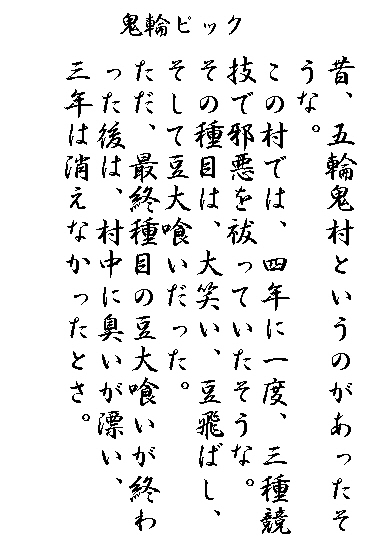 鬼輪ピック
昔、五輪鬼村というのがあったそ
うな。
この村では、四年に一度、三種競
技で邪悪を祓っていたそうな。
その種目は、大笑い、豆飛ばし、
そして豆大喰いだった。
ただ、最終種目の豆大喰いが終わ
った後は、村中に臭いが漂い、
三年は消えなかったとさ。